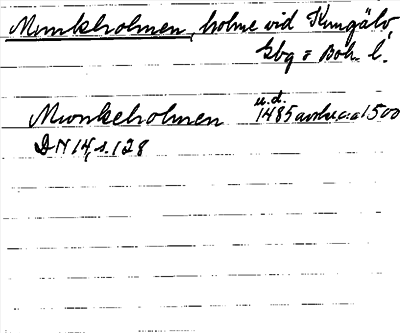 Munkholmen, holme vid Kungälv,
Gbg o Boh. l.
Munkeholmen u.d. 1485 avskr. ca 1500
DN 14, s. 128